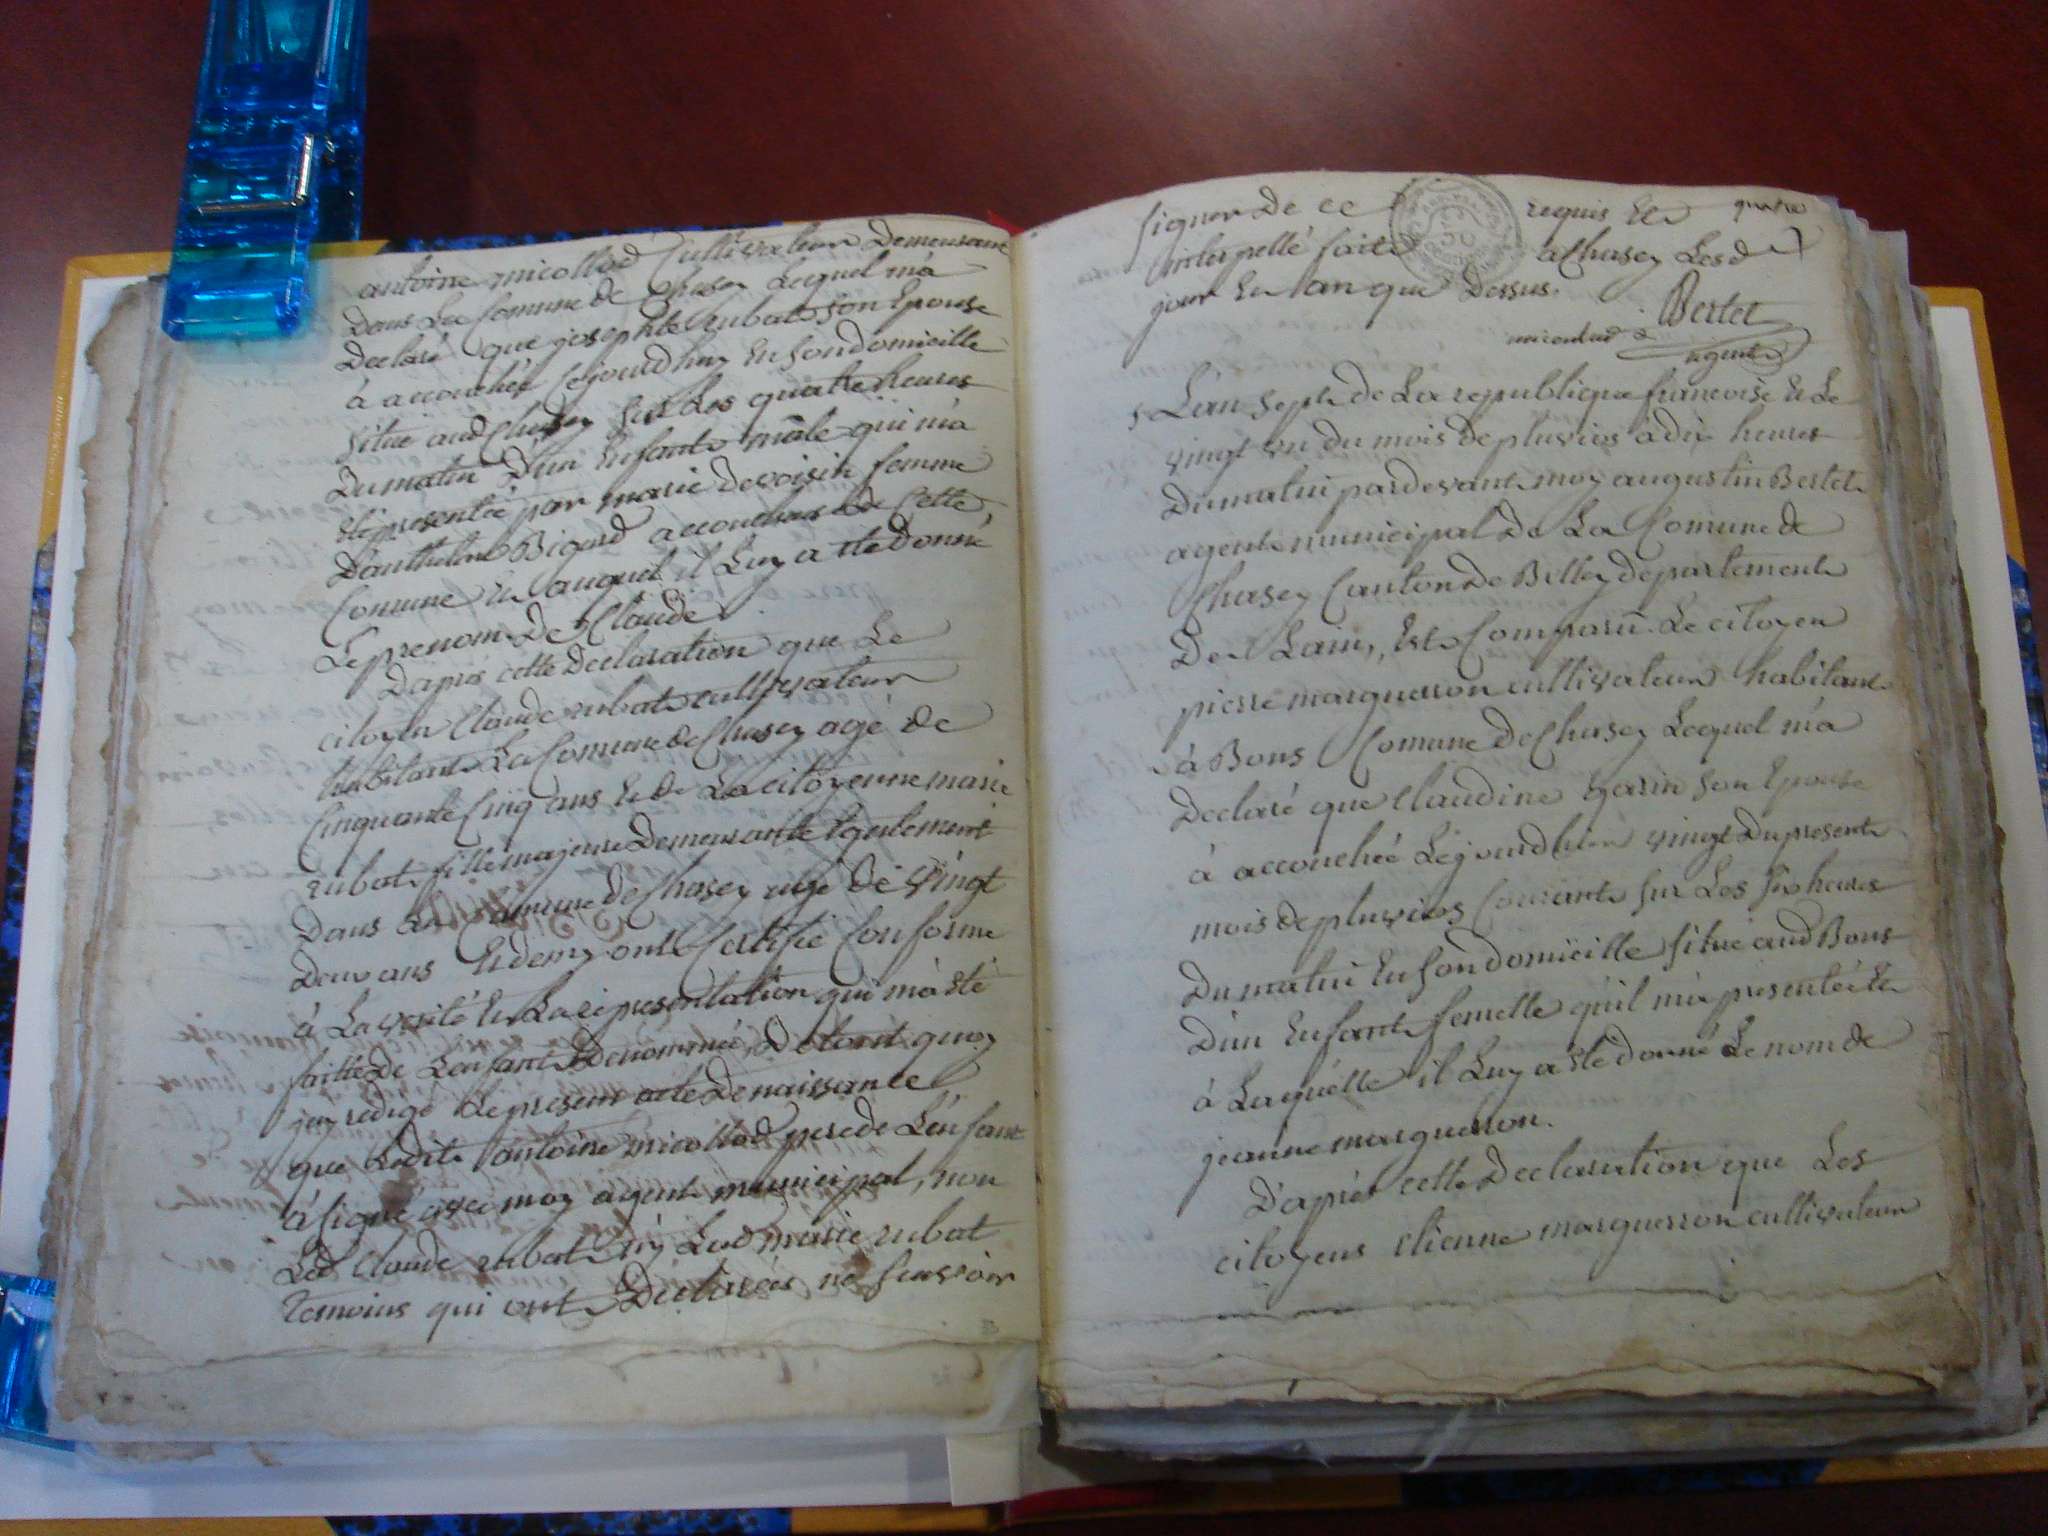 antoine micollod Cultivateur Demeurant
Dans La Comune de Chasey Lequel m'a
Declaré que josephte rubat son Epouse
à accouchée Cejourdhuy En son domicille
situé aud Chasey sur Les quatre heures
Du matin D'un Enfant mâle qui m'a
Eté presentée par marie devoisin femme
D'anthelme Bigard accoucheuse de Cette
Comune Et auquel il Luy a ete donné
Le prenom De Claude.
D'aprés cette declaration que Le
citoyen Claude rubat cultivateur
habitant La Comune de Chasey agé de
Cinquante Cinq ans Et de La citoyenne marie
rubat fille majeure Demeurante Egalement
Dans La Comune de Chasey agé de Vingt
Deux ans Et demy ont Certifié Conforme
à La verité Et La representation qui m'a eté
faitte de L'enfant Denommé, De tout quoy
jay redigé Le present acte De naissance
que Ledit antoine micollod pere de L'enfant
à signé avec moy agent municipal, non
Led Claude rubat ny Lad marie rubat
Temoins qui ont Declarées ne scavoir
signer De ce requis Et quatre
interpellé fait a Chasey Les d
jour Et an que Dessus.
Bertet
micoulod a
agent
5 L'an Sept de La republique francoise Et Le
vingt un du mois de pluvios à dix heures
Du matin pardevant moy augustin Bertet
agent municipal De La Comune de
Chasey Canton De Belley departement
De Lain, Est Comparu Le citoyen
pierre marguerron cultivateur habitant
à Bons Comune De Chasey Lequel m'a
Declaré que Claudine Garin son Epouse
à accouchée Lejourdhier vingt Du present
mois de pluvios Courant sur Les six heures
Du matin En son domicille situé aud Bons
D'un Enfant femelle qu'il m'a presentée Et
à Laquelle il Luy a Eté donné Le nom de
jeanne marguerron.
D'aprés cette Declaration que Les
citoyens Etienne marguerron cultivateur